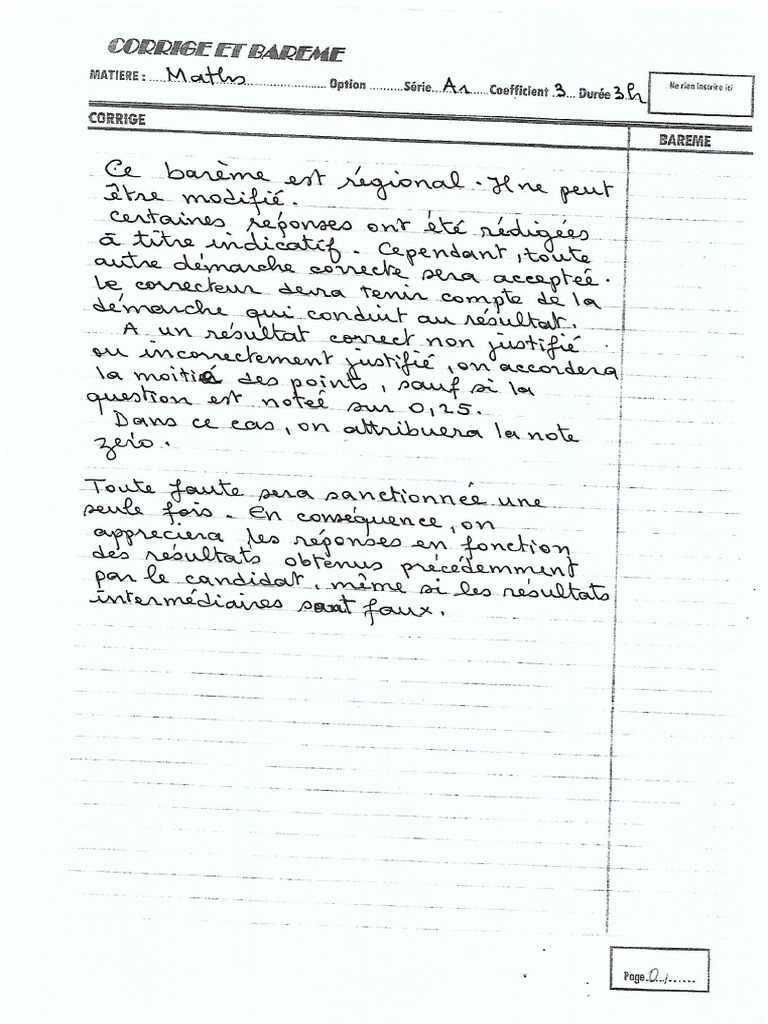 CORRIGE ET BAREME
MATIERE : Maths Option Série A1 Coefficient 3 Durée 3h
Ne rien inscrire ici
CORRIGE
BAREME
Ce barème est régional. Il ne peut
être modifié.
Certaines réponses ont été rédigées
à titre indicatif. Cependant, toute
autre démarche correcte sera acceptée.
Le correcteur devra tenir compte de la
démarche qui conduit au résultat.
A un résultat correct non justifié
ou incorrectement justifié, on accordera
la moitié des points, sauf si la
question est notée sur 0,25.
Dans ce cas, on attribuera la note
zéro.
Toute faute sera sanctionnée une
seule fois. En conséquence, on
appréciera les réponses en fonction
des résultats obtenus précédemment
par le candidat, même si les résultats
intermédiaires sont faux.
Page 0 /